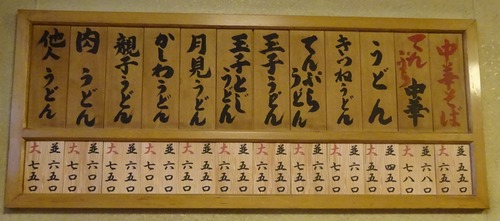 中華そば
てんぷら中華
うどん
きつねうどん
てんぷらうどん
玉子うどん
玉子とじうどん
月見うどん
かしわうどん
親子うどん
肉うどん
他人うどん
並 五五〇
大 六五〇
並 六八〇
大 七八〇
並 四五〇
大 五五〇
並
大
並
大
並 五五〇
大 六五〇
並 五五〇
大 六五〇
並 五五〇
大 六五〇
並
大 七〇〇
並
大
並
大 七五〇
並 六五〇
大 七五〇